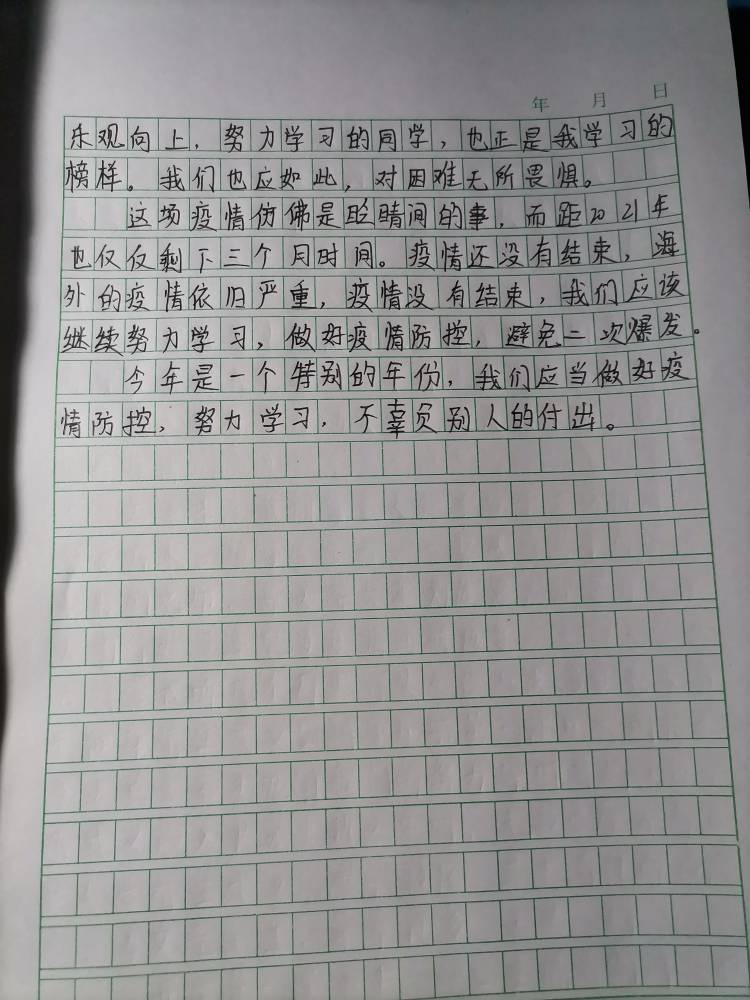 年 月 日
乐观向上，努力学习的同学，也正是我学习的
榜样。我们也应如此，对困难无所畏惧。
这场疫情仿佛是眨睛间的事，而距2021年
也仅仅剩下三个月时间。疫情还没有结束，海
外的疫情依旧严重，疫情没有结束，我们应该
继续努力学习，做好疫情防控，避免二次爆发。
今年是一个特别的年份，我们应当做好疫
情防控，努力学习，不辜负别人的付出。